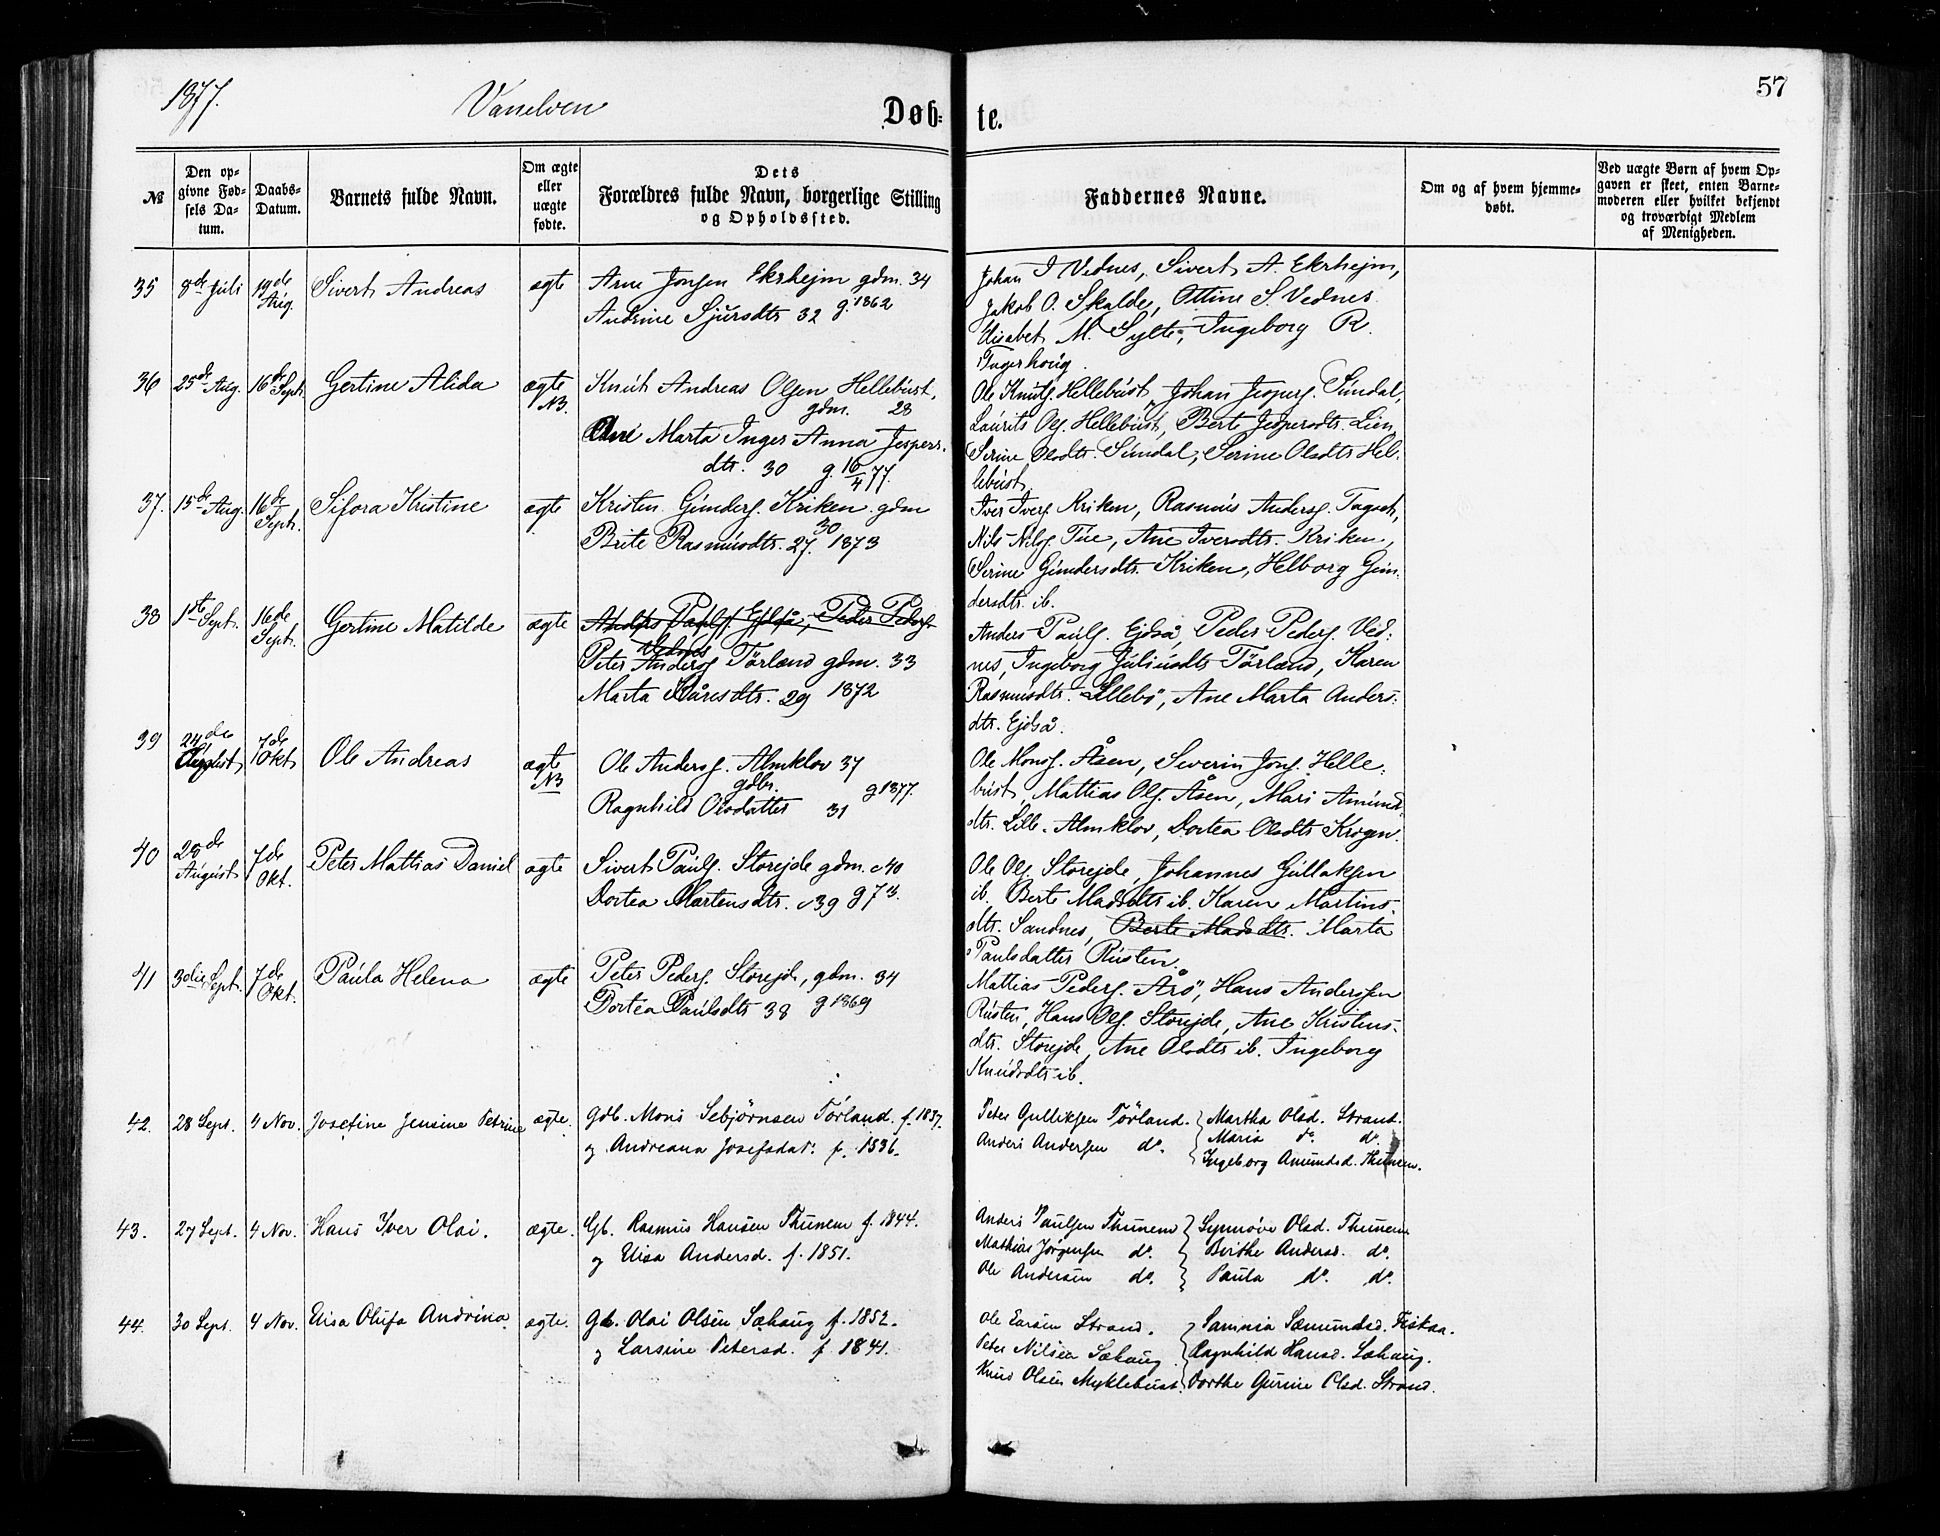 1877.
Vanelven
Døb-
te.
57
№
Den opgivne Fødsels Datum.
Daabs-Datum.
Barnets fulde Navn.
Om ægte eller uægte fødte.
Dets Forældres fulde Navn, borgerlige Stilling og Opholdssted.
Faddernes Navne.
Om og af hvem hjemmedøbt.
Ved uægte Børn af hvem Opgaven er skeet, enten Barnemoderen eller hvilket bekjendt og troværdigt Medlem af Menigheden.
35 8de Juli 19de Aug. Sivert Andreas ægte
Arne Jonsen Ekrhejm gdm. 34
Andrine Sjursdtr 32 g. 1862
Johan J Vednes, Sivert A. Ekrhejm,
Jakob O. Skalde, Ottine S. Vednes
Elisabet M. Sylte, Ingeborg R.
36 25de Aug. 16de Sept. Gertine Alida ægte NB.
Knut Andreas Olsen Hellebust,
gdm. 28
Marta Inger Anna Jespers-
dtr. 30 g. 16/4 77.
Ole Knuts. Hellebust, Johan Jespers. Sundal,
Laurits Ols. Hellebust, Berte Jespersdtr. Lien,
Serine Olsdtr. Sundal, Serine Olsdtr Hel-
lebust.
37. 15de Aug. 16de Sept. Sifora Kristine ægte
Kristen Gunders. Kriken gdm
30
Brite Rasmusdtr. 27. 1873
Iver Ivers. Kriken, Rasmus Anders.
Nils Nils. Tue, Ane Iversdtr. Kriken,
Serine Gundersdtr. Kriken, Helborg Gun-
dersdtr. ib.
38 1ste Sept. 16de Sept. Gertine Matilde ægte
Anders Pauls. Ejdså, Peder Peders.
Vednes
Peter Anders. Tørland gdm. 33
Marta Kåresdtr. 29 1872
Anders Pauls. Ejdså, Peder Peders. Ved-
nes, Ingeborg Juliusdtr Tørland, Karen
Rasmusdtr. Lillebø, Ane Marta Anders-
dtr. Ejdså.
39 24de August 7de Okt Ole Andreas ægte NB
Ole Anders. Almklov 37
gdbr.
Ragnhild Olsdatter 31 g 1877.
Ole Mons. Åsen, Severin Jons. Helle-
bust, Mattias Ols. Åsen, Mari Amunds-
dtr. Lille-Almklov, Dortea Olsdtr Krogen.
40 25de August 7de Okt. Peter Mattias Daniel ægte
Sivert Pauls. Storejde gdm. 40
Dortea Martensdtr. 39 g 73.
Ole Ols. Storejde, Johannes Gullaksen
ib. Berte Madsdtr ib. Karen Martins-
dtr. Sandnes, Berte Madsdtr. Marta
Paulsdatter Rusten.
41 3die Sept. 7de Okt. Paula Helena ægte
Peter Peders. Storejde, gdm. 34
Dortea Paulsdtr 38 g 1869
Mattias Peders. Årø, Hans Anderssen
Rusten, Hans Ols. Storejde, Ane Kristens-
dtr. Storejde, Ane Olsdtr ib. Ingeborg
Knudsdtr ib.
42. 28 Sept. 4 Nov. Josefine Jensine Petrine ægte.
Gdb. Mons Sebjørnsen Tørland. f. 1837.
og Andreana Josefsdat: f. 1836.
Peter Gulliksen Tørland. Martha Olsd. Strand.
Anders Andersen do. Maria do. do.
Ingeborg Amundsd. Thunem.
43. 27 Sept. 4 Nov. Hans Iver Olai. ægte.
Gb. Rasmus Hansen Thunem f. 1844.
og Elisa Andersd. f. 1851.
Anders Paulsen Thunem Synnøve Olsd. Thunem
Mathias Jørgensen do. Birthe Andersd. do.
Ole Andersen do. Paula do. do.
44. 30 Sept. 4 Nov. Elisa Olufa Andrina. ægte.
Gb. Olai Olsen Sæhaug f. 1852.
og Larsine Petersd. f. 1841.
Ole Larsen Strand. Samina Sæmundsd. Fiskaa.
Peter Nilsen Sæhaug Ragnhild Hansd. Sæhaug.
Knud Olsen Myklebust. Dorthe Gurine Olsd. Strand.